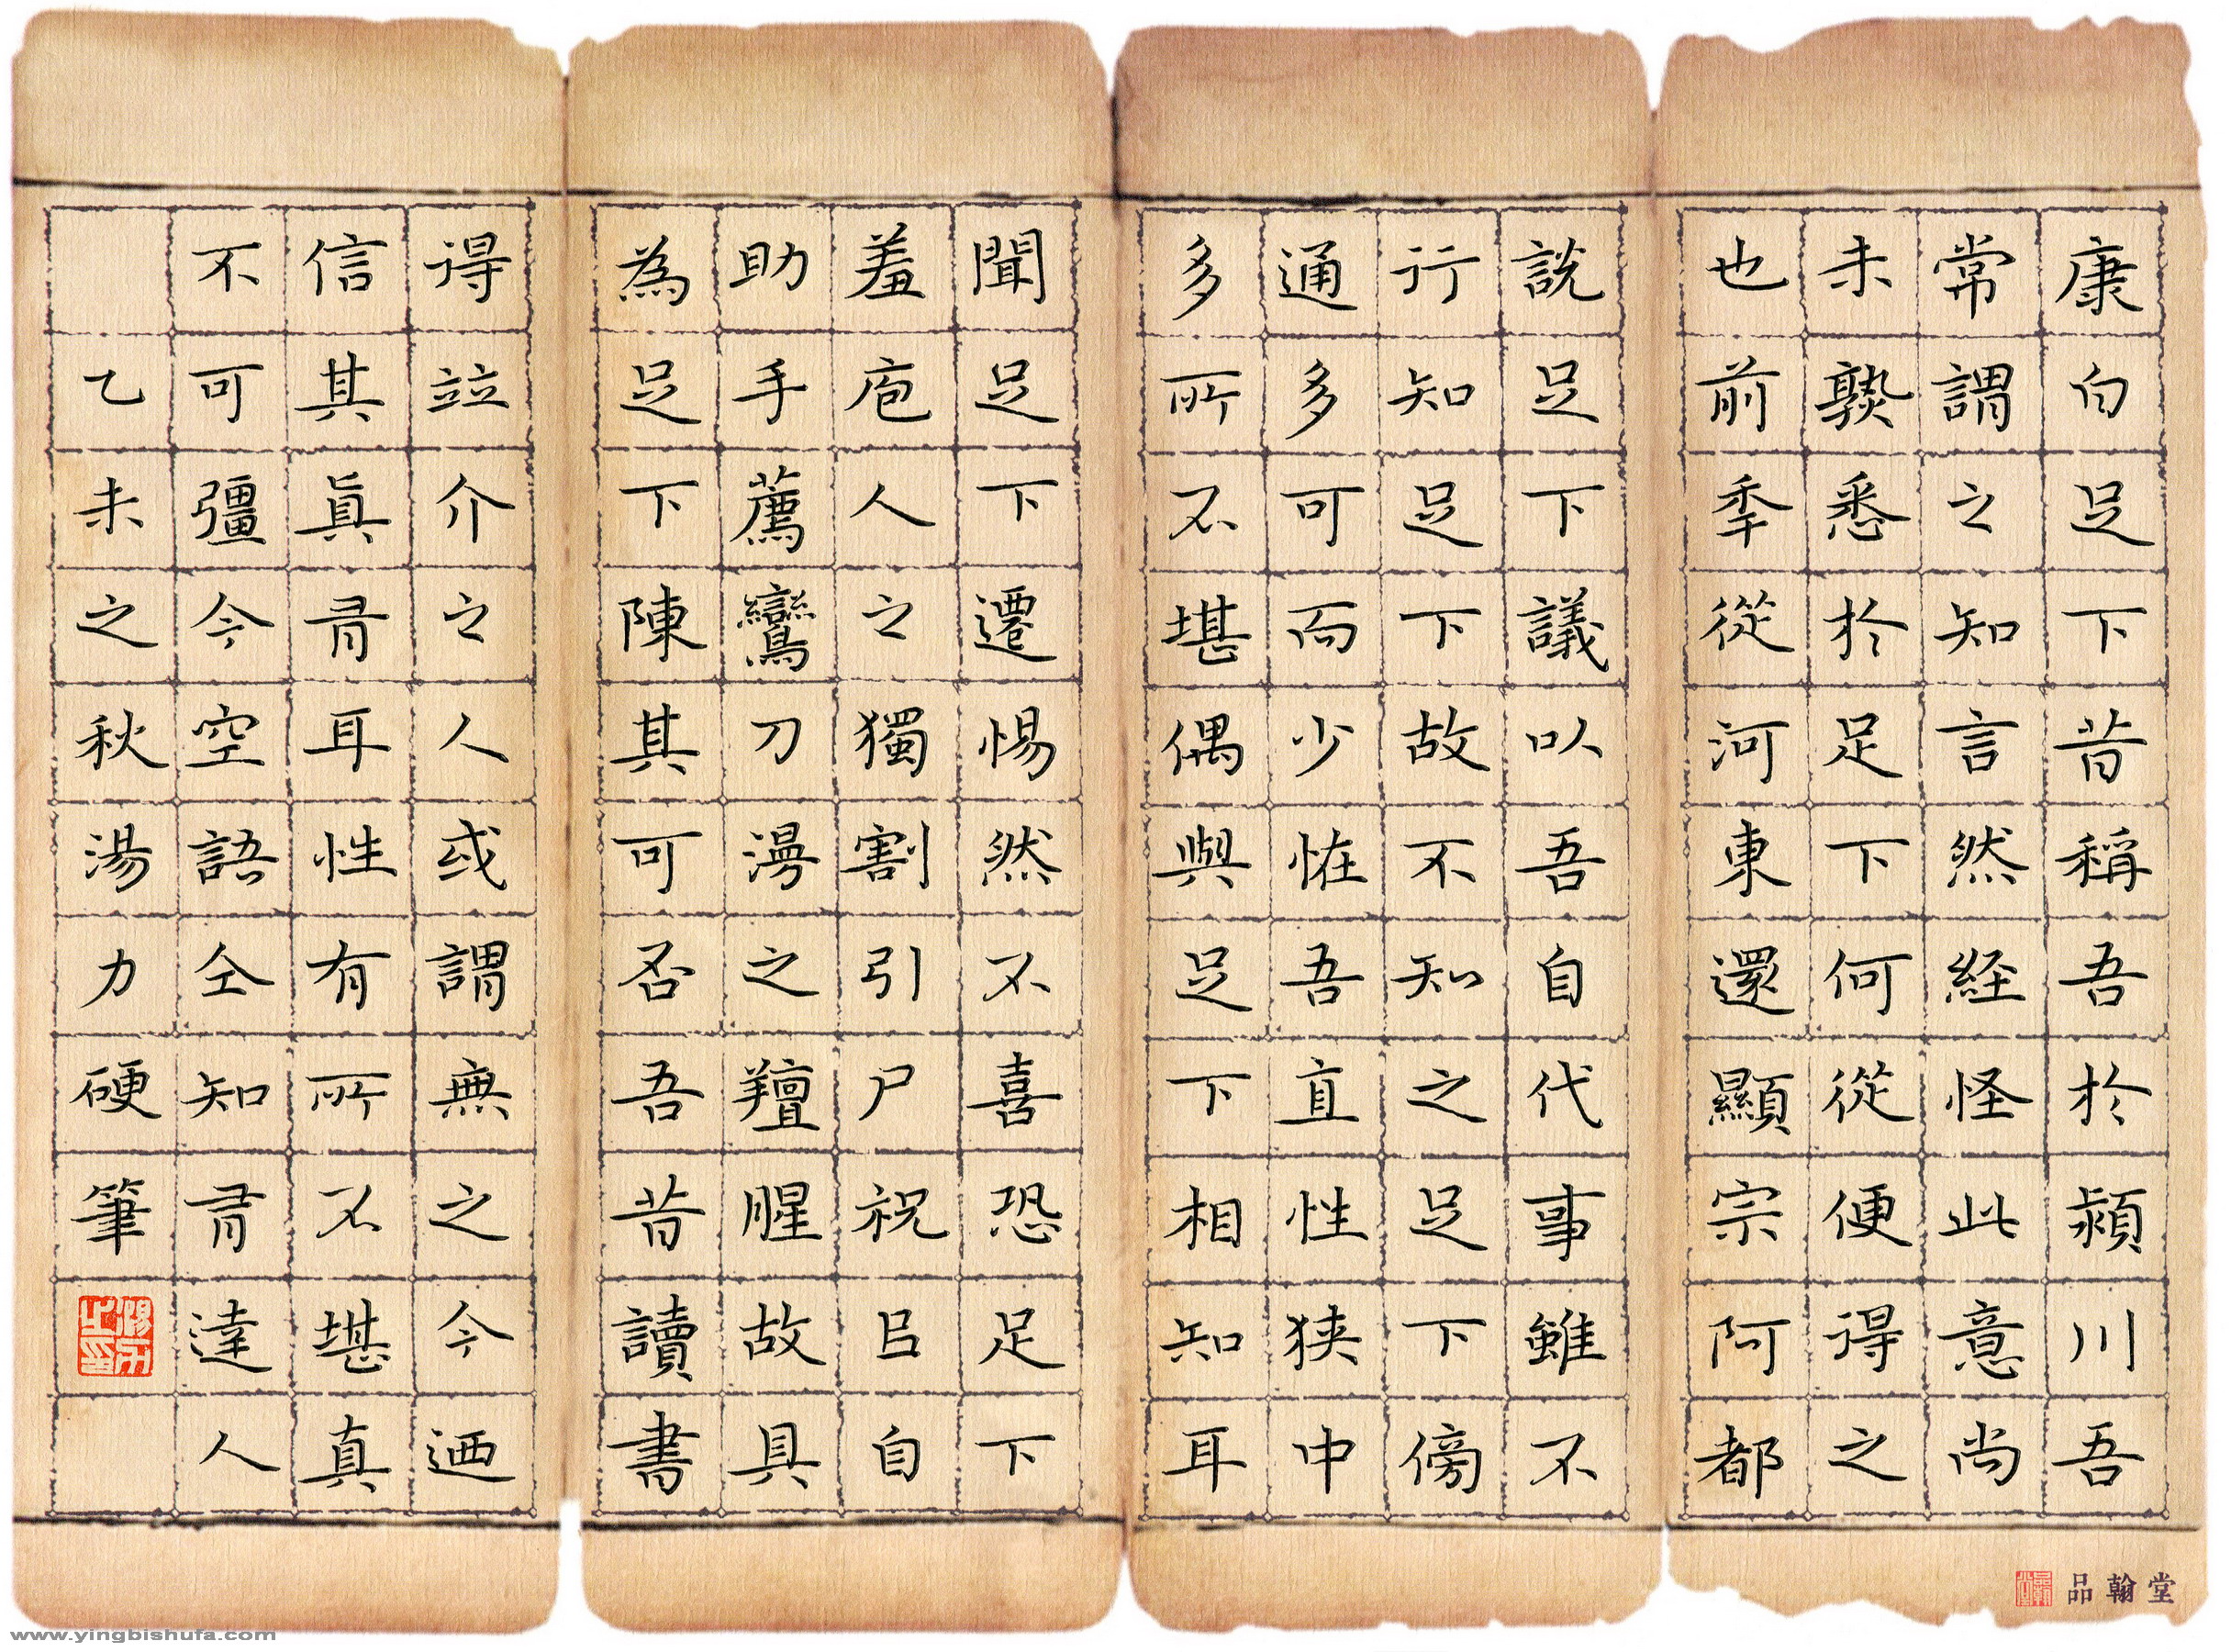 康白足下昔稱吾於潁川吾
常謂之知言然経怪此意尚
未熟悉於足下何從便得之
也前秊從河東還顯宗阿都
說足下議以吾自代事雖不
行知足下故不知之足下傍
通多可而少恠吾直性狭中
多所不堪偶與足下相知耳
聞足下遷惕然不喜恐足下
羞庖人之獨割引尸祝㠯自
助手薦鸞刀漫之羶腥故具
為足下陳其可否吾昔讀書
得竝介之人或謂無之今迺
信其真有耳性有所不堪真
不可彊今空語仝知有達人
乙未之秋湯力硬筆
品翰堂
www.yingbishufa.com